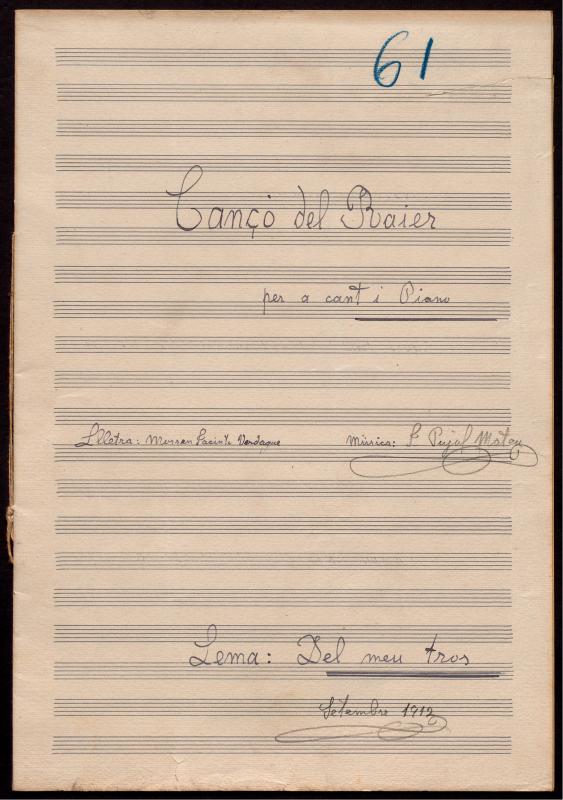 61
Cançò del Raier
per a cant i Piano
Lletra: Mossen Jacinte Verdague Música: Pujol Mateu
Lema: Del meu tros
Setembre 1912